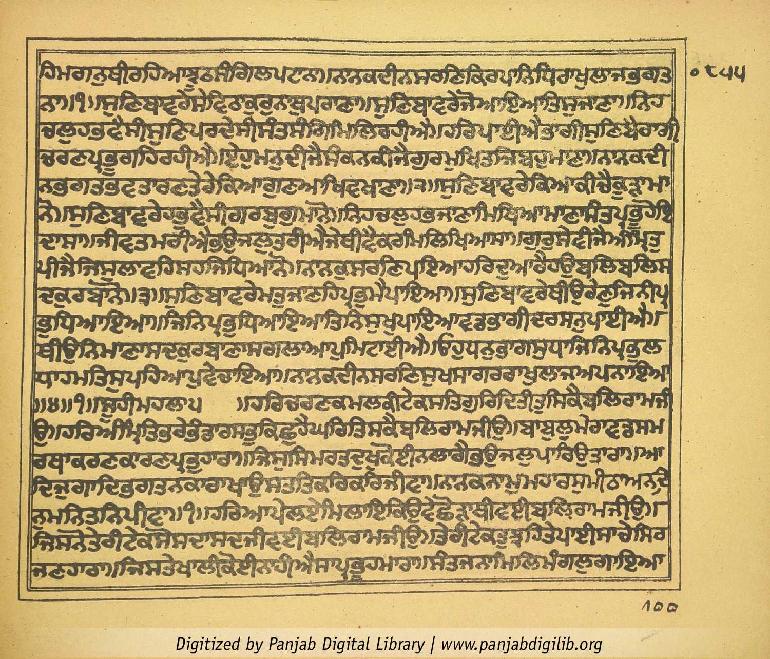 ਹਿਮਗਨਥੀਰਹਿਆਝੂਠਸੰਗਿਲਪਟਾਨਾ॥ਨਾਨਕਦੀਨਸਰਣਿਕਿਰਪਾਨਿਧਿਰਾਖੁਲਾਜਭਗਤਾ
ਨਾ॥੧॥ਸੁਣਿਬਾਵਰੇਸੇਵਿਠਾਕੁਰੁਨਾਥੁਪਰਾਣਾ॥ਸੁਣਿਬਾਵਰੇਜੋਆਇਆਤਿਸੁਜਾਣਾ॥ਨਿਹ
ਚਲੁਹਭਵੈਸੀਸੁਣਿਪਰਦੇਸੀਸੰਤਸੰਗਿਮਿਲਿਰਹੀਐ॥ਹਰਿਪਾਈਐਭਾਗੀਸੁਣਿਬੈਰਾਗੀ
ਚਰਣਪ੍ਰਭੂਗਹਿਰਹੀਐ॥ਏਹੁਮਨੁਦੀਜੈਸੰਕਨਕੀਜੈਗੁਰਮੁਖਿਤਜਿਬਹੁਮਾਣਾ॥ਨਾਨਕਦੀ
ਨਭਗਤਭਵਤਾਰਣਤੇਰੇਕਿਆਗੁਣਆਖਿਵਖਾਣਾ॥੨॥ਸੁਣਿਬਾਵਰੇਕਿਆਕੀਚੈਕੂੜਾਮਾ
ਨੋ॥ਸੁਣਿਬਾਵਰੇਹਭੁਵੈਸੀਗਰਬੁਗੁਮਾਨੋ॥ਨਿਹਚਲੁਹਭਜਾਣਾਮਿਥਿਆਮਾਣਾਸੰਤਪ੍ਰਭੂਹੋਇ
ਦਾਸਾ॥ਜੀਵਤਮਰੀਐਭਉਜਲੁਤਰੀਐਜੇਥੀਵੈਕਰਮਿਲਿਖਿਆਸਾ॥ਗੁਰੁਸੇਵੀਜੈਅੰਮ੍ਰਿਤੁ
ਪੀਜੈਜਿਸੁਲਾਵਹਿਸਹਜਿਧਿਆਨੋ॥ਨਾਨਕੁਸਰਣਿਪਇਆਹਰਿਦੁਆਰੈਹਉਬਲਿਬਲਿਸ
ਦਕੁਰਬਾਨੋ॥੩॥ਸੁਣਿਬਾਵਰੇਮਤੁਜਾਣਹਿਪ੍ਰਭੁਮੈਪਾਇਆ॥ਸੁਣਿਬਾਵਰੇਥੀਉਰੇਣੁਜਿਨੀਪ੍ਰ
ਭੁਧਿਆਇਆ॥ਜਿਨਿਪ੍ਰਭੁਧਿਆਇਆਤਿਨਿਸੁਖੁਪਾਇਆਵਡਭਾਗੀਦਰਸਨੁਪਾਈਐ॥
ਥੀਉਨਿਮਾਣਾਸਦਕੁਰਬਾਣਾਸਗਲਾਆਪੁਮਿਟਾਈਐ॥ਓਹੁਧਨੁਭਾਗਸੁਧਾਜਿਨਿਪ੍ਰਭੁਲ
ਧਾਹਮਤਿਸੁਪਹਿਆਪੁਵੇਚਾਇਆ॥ਨਾਨਕਦੀਨਸਰਣਿਸੁਖਸਾਗਰਰਾਖੁਲਾਜਅਪਨਾਇਆ
॥੪॥੧॥ਸੂਹੀਮਹਲਾ੫ ॥ਹਰਿਚਰਣਕਮਲਕੀਟੇਕਸਤਿਗੁਰਿਦਿਤੀਤੁਸਿਕੈਬਲਿਰਾਮਜੀ
ਉ॥ਹਰਿਅੰਮ੍ਰਿਤਿਭਰੇਭੰਡਾਰਸਭੁਕਿਛੁਹੈਘਰਿਤਿਸਕੈਬਲਿਰਾਮਜੀਉ॥ਬਾਬੁਲੁਮੇਰਾਵਡਸਮ
ਰਥਾਕਰਣਕਾਰਣਪ੍ਰਭੁਹਾਰਾ॥ਜਿਸੁਸਿਮਰਤਦੁਖੁਕੋਈਨਲਾਗੈਭਉਜਲੁਪਾਰਿਉਤਾਰਾ॥ਆ
ਦਿਜੁਗਾਦਿਭਗਤਨਕਾਰਾਖਾਉਸਤਤਿਕਰਿਕਰਿਜੀਵਾ॥ਨਾਨਕਨਾਮੁਮਹਾਰਸੁਮੀਠਾਅਨਦਿ
ਨੁਮਨਿਤਨਿਪੀਵਾ॥੧॥ਹਰਿਆਪੇਲਏਮਿਲਾਇਕਿਉਵੇਛੋੜਾਥੀਵਈਬਲਿਰਾਮਜੀਉ॥
ਜਿਸਨੋਤੇਰੀਟੇਕਸੋਸਦਾਸਦਜੀਵਈਬਲਿਰਾਮਜੀਉ॥ਤੇਰੀਟੇਕਤੁਝੈਤੇਪਾਈਸਾਚੇਸਿਰ
ਜਣਹਾਰਾ॥ਜਿਸਤੇਖਾਲੀਕੋਈਨਾਹੀਐਸਾਪ੍ਰਭੂਹਮਾਰਾ॥ਸੰਤਜਨਾਮਿਲਿਮੰਗਲੁਗਾਇਆ
੧੦੦
Digitized by Panjab Digital Library | www.panjabdigilib.org